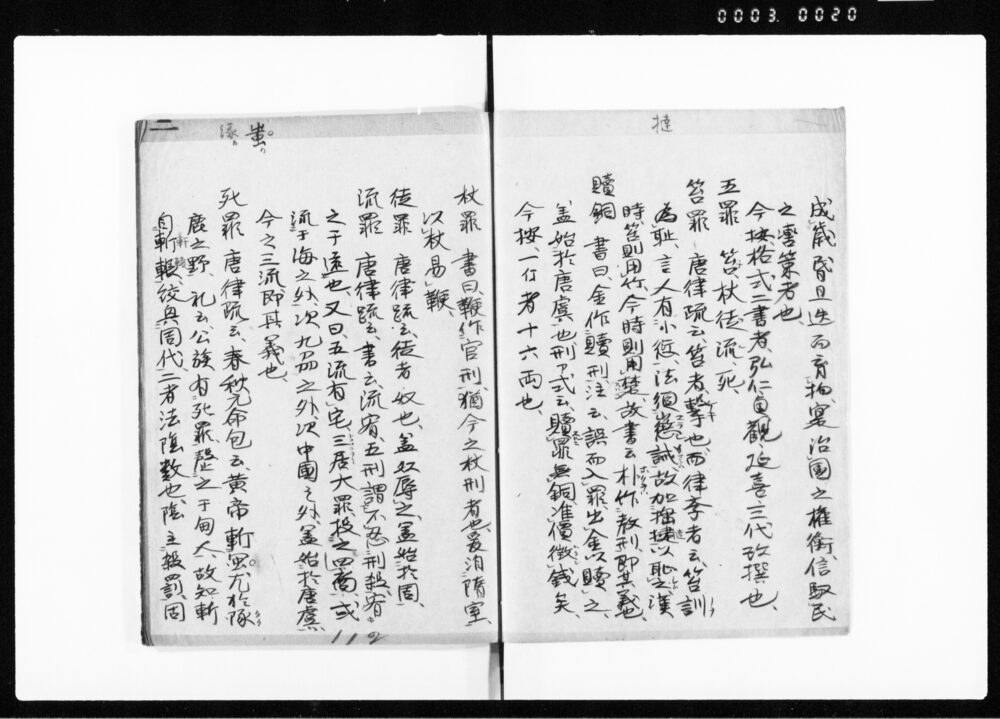 0003. 0020
撻
成歳昏旦迭而育物寔治國之権衡信馭民
之轡策者也、
今按格式二書者、弘仁貞觀延喜三代改撰也、
五罪 笞、杖、徒、流、死、
笞罪 唐律疏云、笞者撃也、而律学者云、笞訓
為耻、言人有小愆、法須懲誡、故加捶撻以耻之、漢
時笞則用竹、今時則用楚、故書云、朴作教刑、即其義也、
贖銅 書曰、金作贖刑、注云、誤而入罪、出金以贖之、
盖始於唐虞也、刑部式云、贖罪無銅、准價徴錢矣、
今按、一斤者十六兩也、
杖罪 書曰、鞭作官刑、猶今之杖刑者也、爰洎隋室、
以杖易鞭、
徒罪 唐律疏云、徒者奴也、盖奴辱之、盖始於周、
流罪 唐律疏云、書云、流宥五刑、謂不忍刑殺、宥
之于遠也、又曰、五流有宅、五宅三居、大罪投之四裔、或
流于海之外、次九州之外、次中國之外、盖始於唐虞、
今之三流、即其義也、
蚩 涿
死罪 唐律疏云、春秋元命包云、黄帝斬蚩尤於涿
鹿之野、礼云、公族有死罪、罄之于甸人、故知斬
自軒轅、絞興周代、二者法陰数也、陰主殺罰、因
二
112